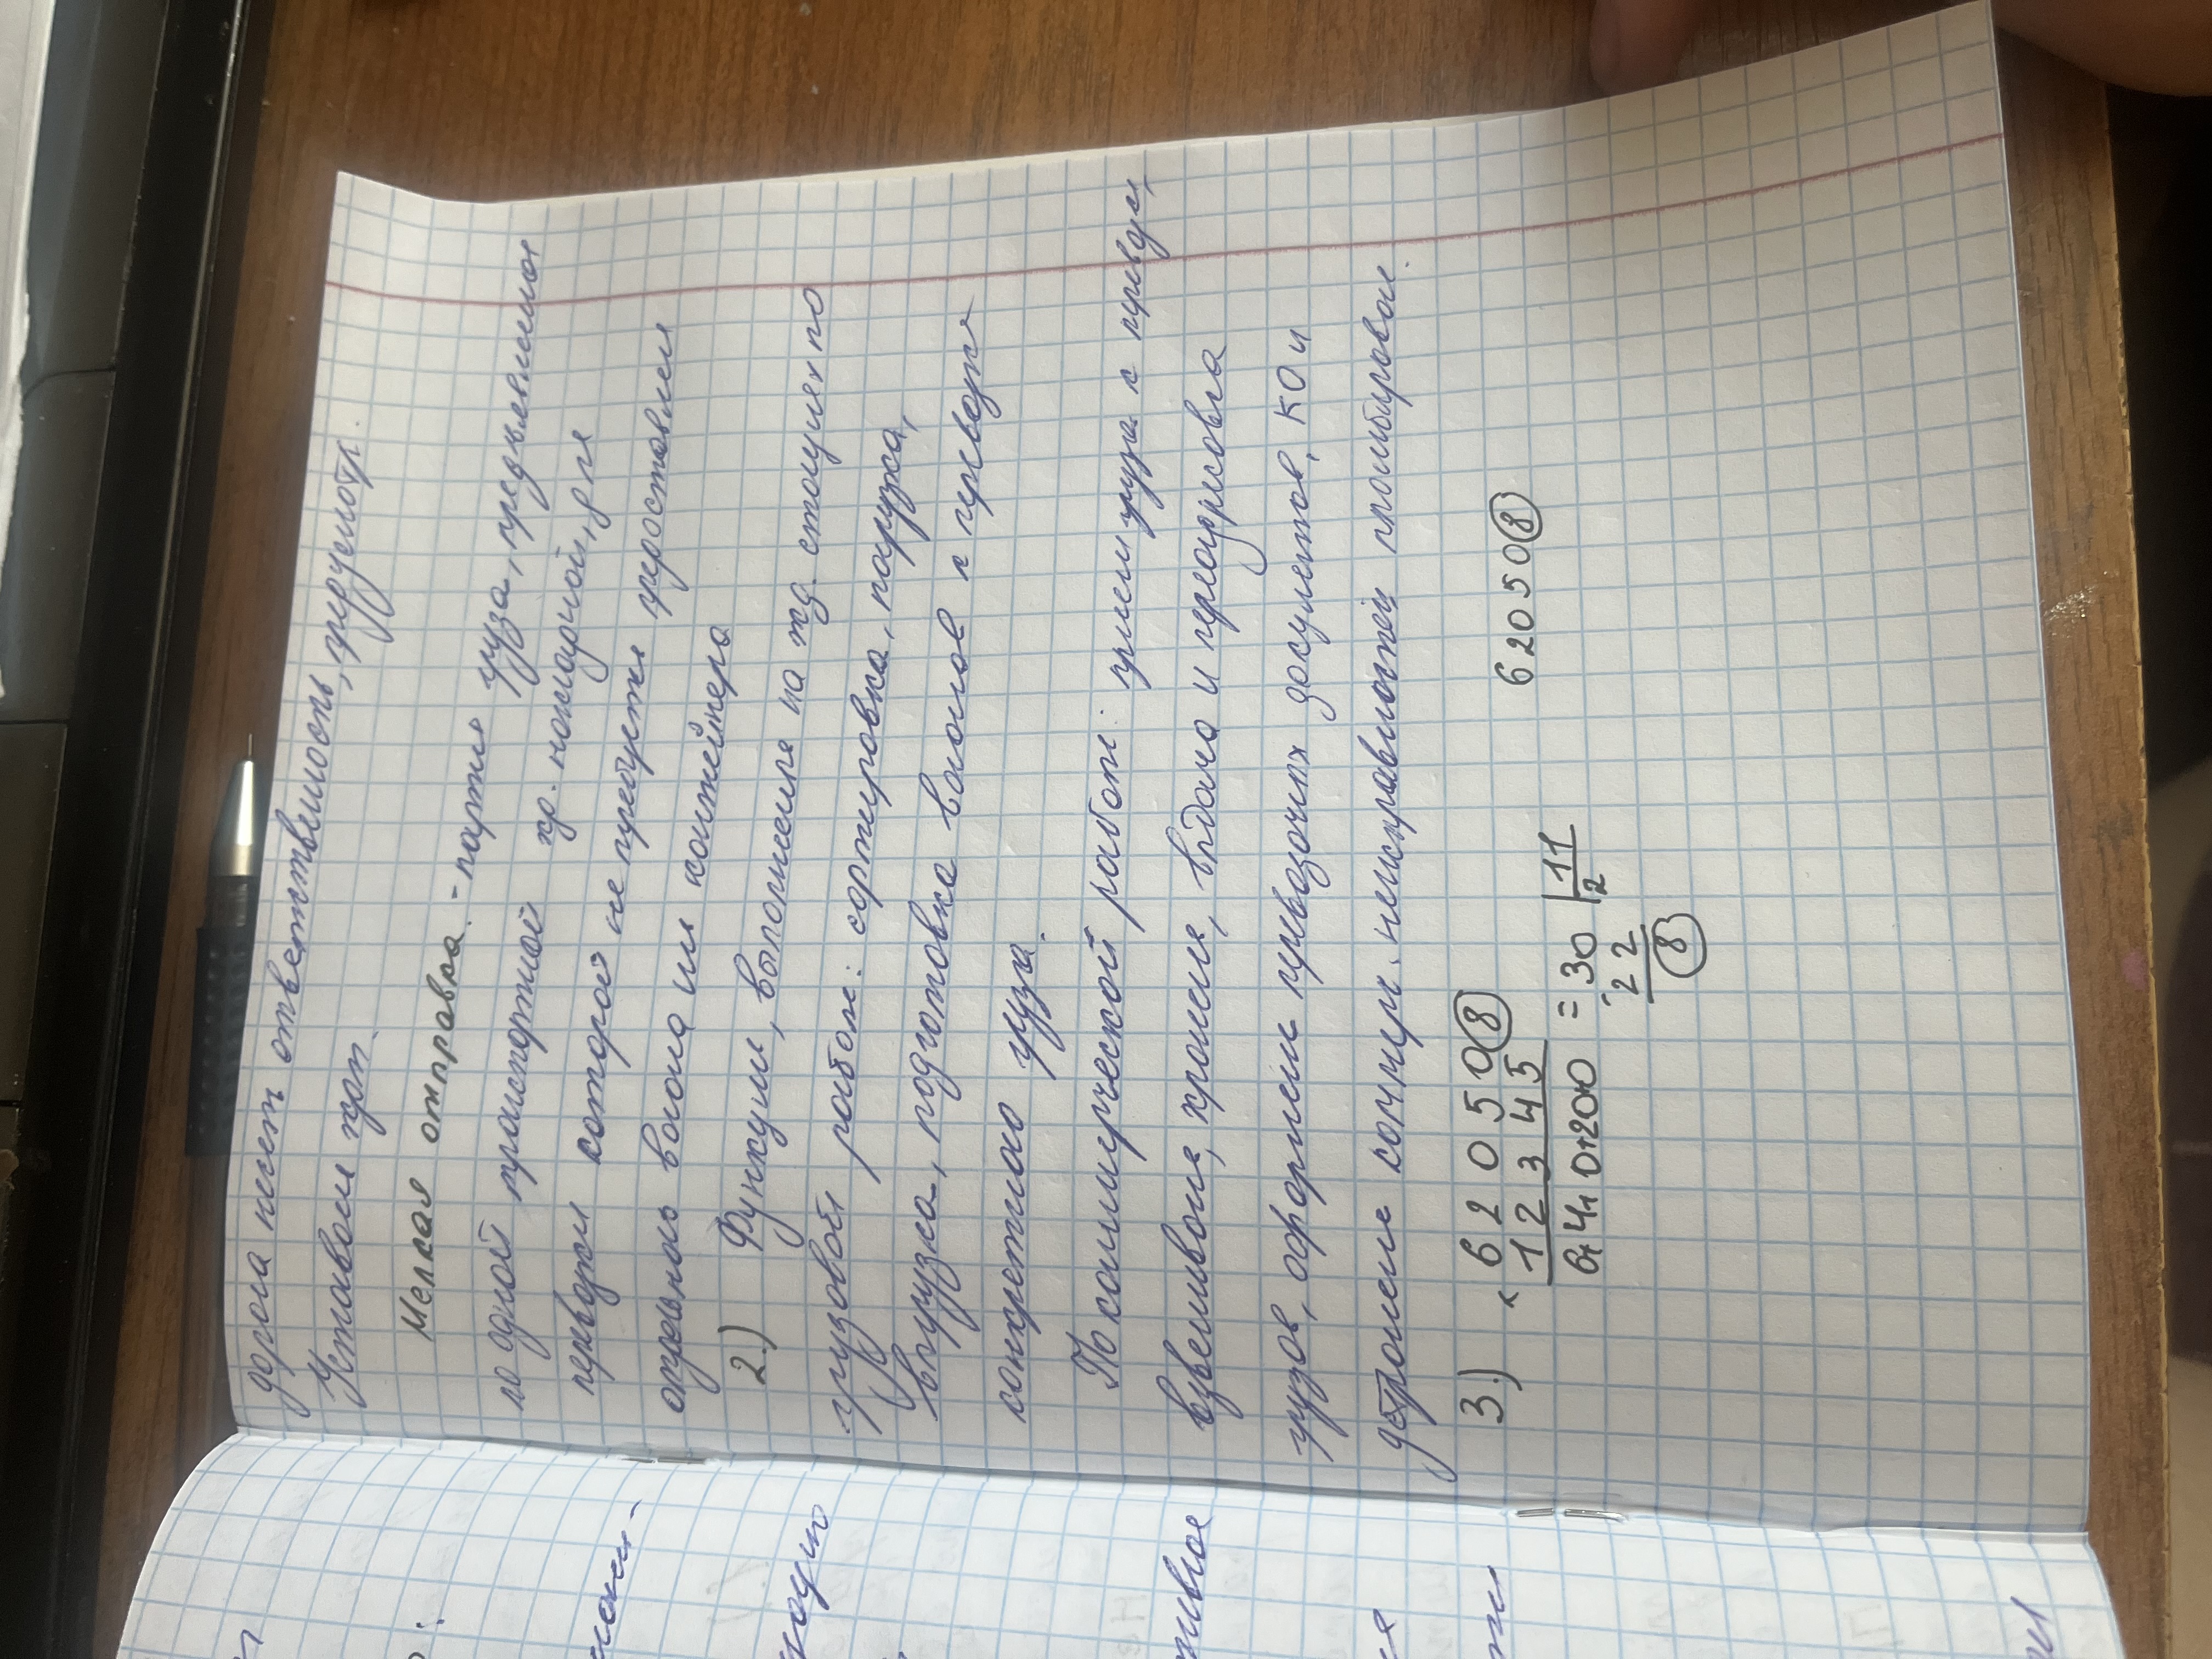 дорога несет ответственность, предусмотр.
Уставом жрт.
Мелкая отправка - партия груза, предъявляемая
по одной транспортной жд. накладной, для
перевозки которой не требуется предоставлен
отдельного вагона или контейнера
2.) Функции, выполняемые на жд станциях по
грузовой работе: сортировка, погрузка,
выгрузка, подготовка вагонов к перевозке
конкретного груза.
По коммерческой работе: прием груза к перевозке,
взвешивание, хранение, выдача и переадресовка
грузов, оформление перевозочных документов, КО и
устранение коммерч. неисправностей пломбирован.
3.) × 6 2 0 5 0 (8) 6 2 0 5 0 (8)
1 2 3 4 5
6+4+0+20+0 = 30 | 11
- 22 2
(8)